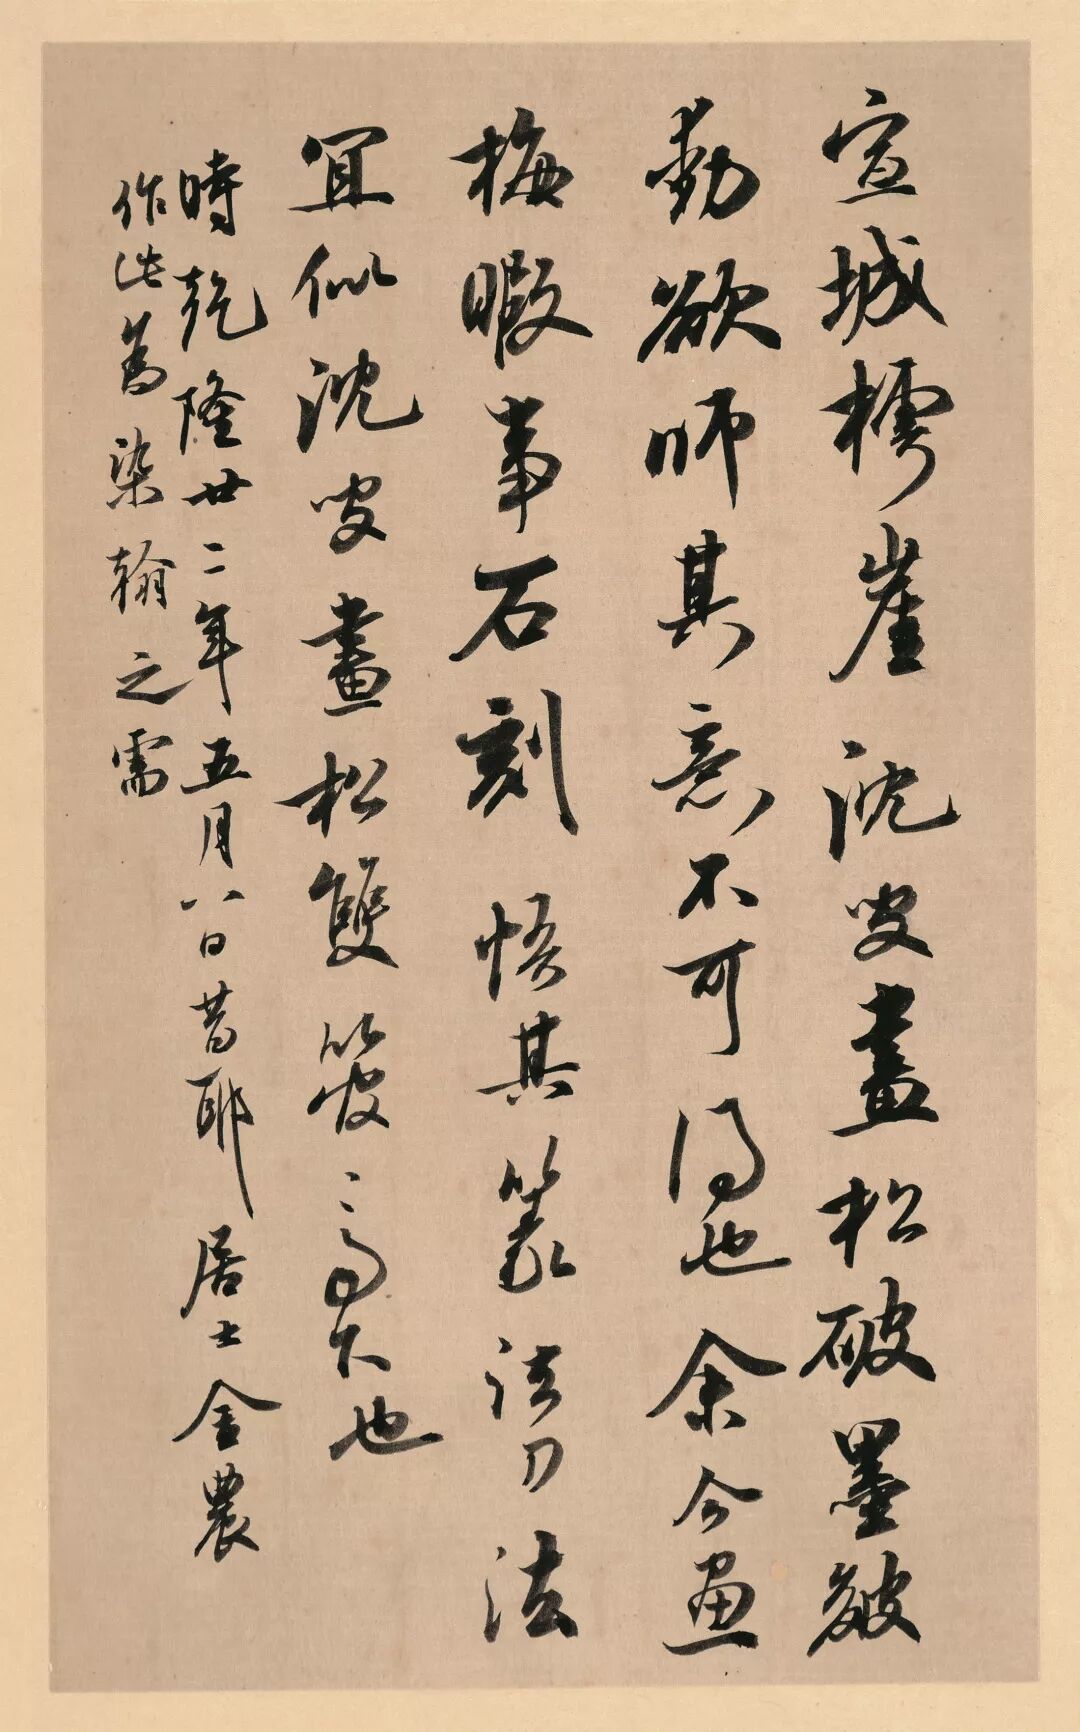 宣城樗崖沈叟畫松破墨皴
勁欲師其意不可得也余今畫
梅暇事石刻悟其篆法刀法
宜似沈叟畫松雙管之高大也
時乾隆廿二年五月八日昔耶居士金農
作此為染翰之需